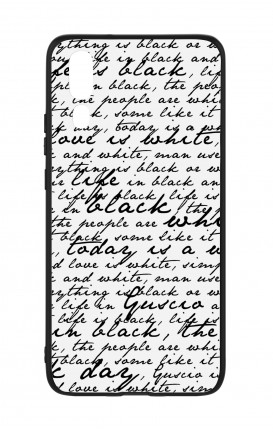 ything is black or w
life in black and
life is black, lif
in black, the peop
k, the people are whi
black, some like it
way, today is a wh
love is white,
and white, man use
erything is black or w
life in black an
life is black, life is
in black, the
the people are whi
black, some like it
today is a w
d love is white, simp
and white, man use
ything is black or w
life in Guscio a
life is black, life is
in black, the
t people are whit
black, some like it
k day, Guscio is
love is white, sim